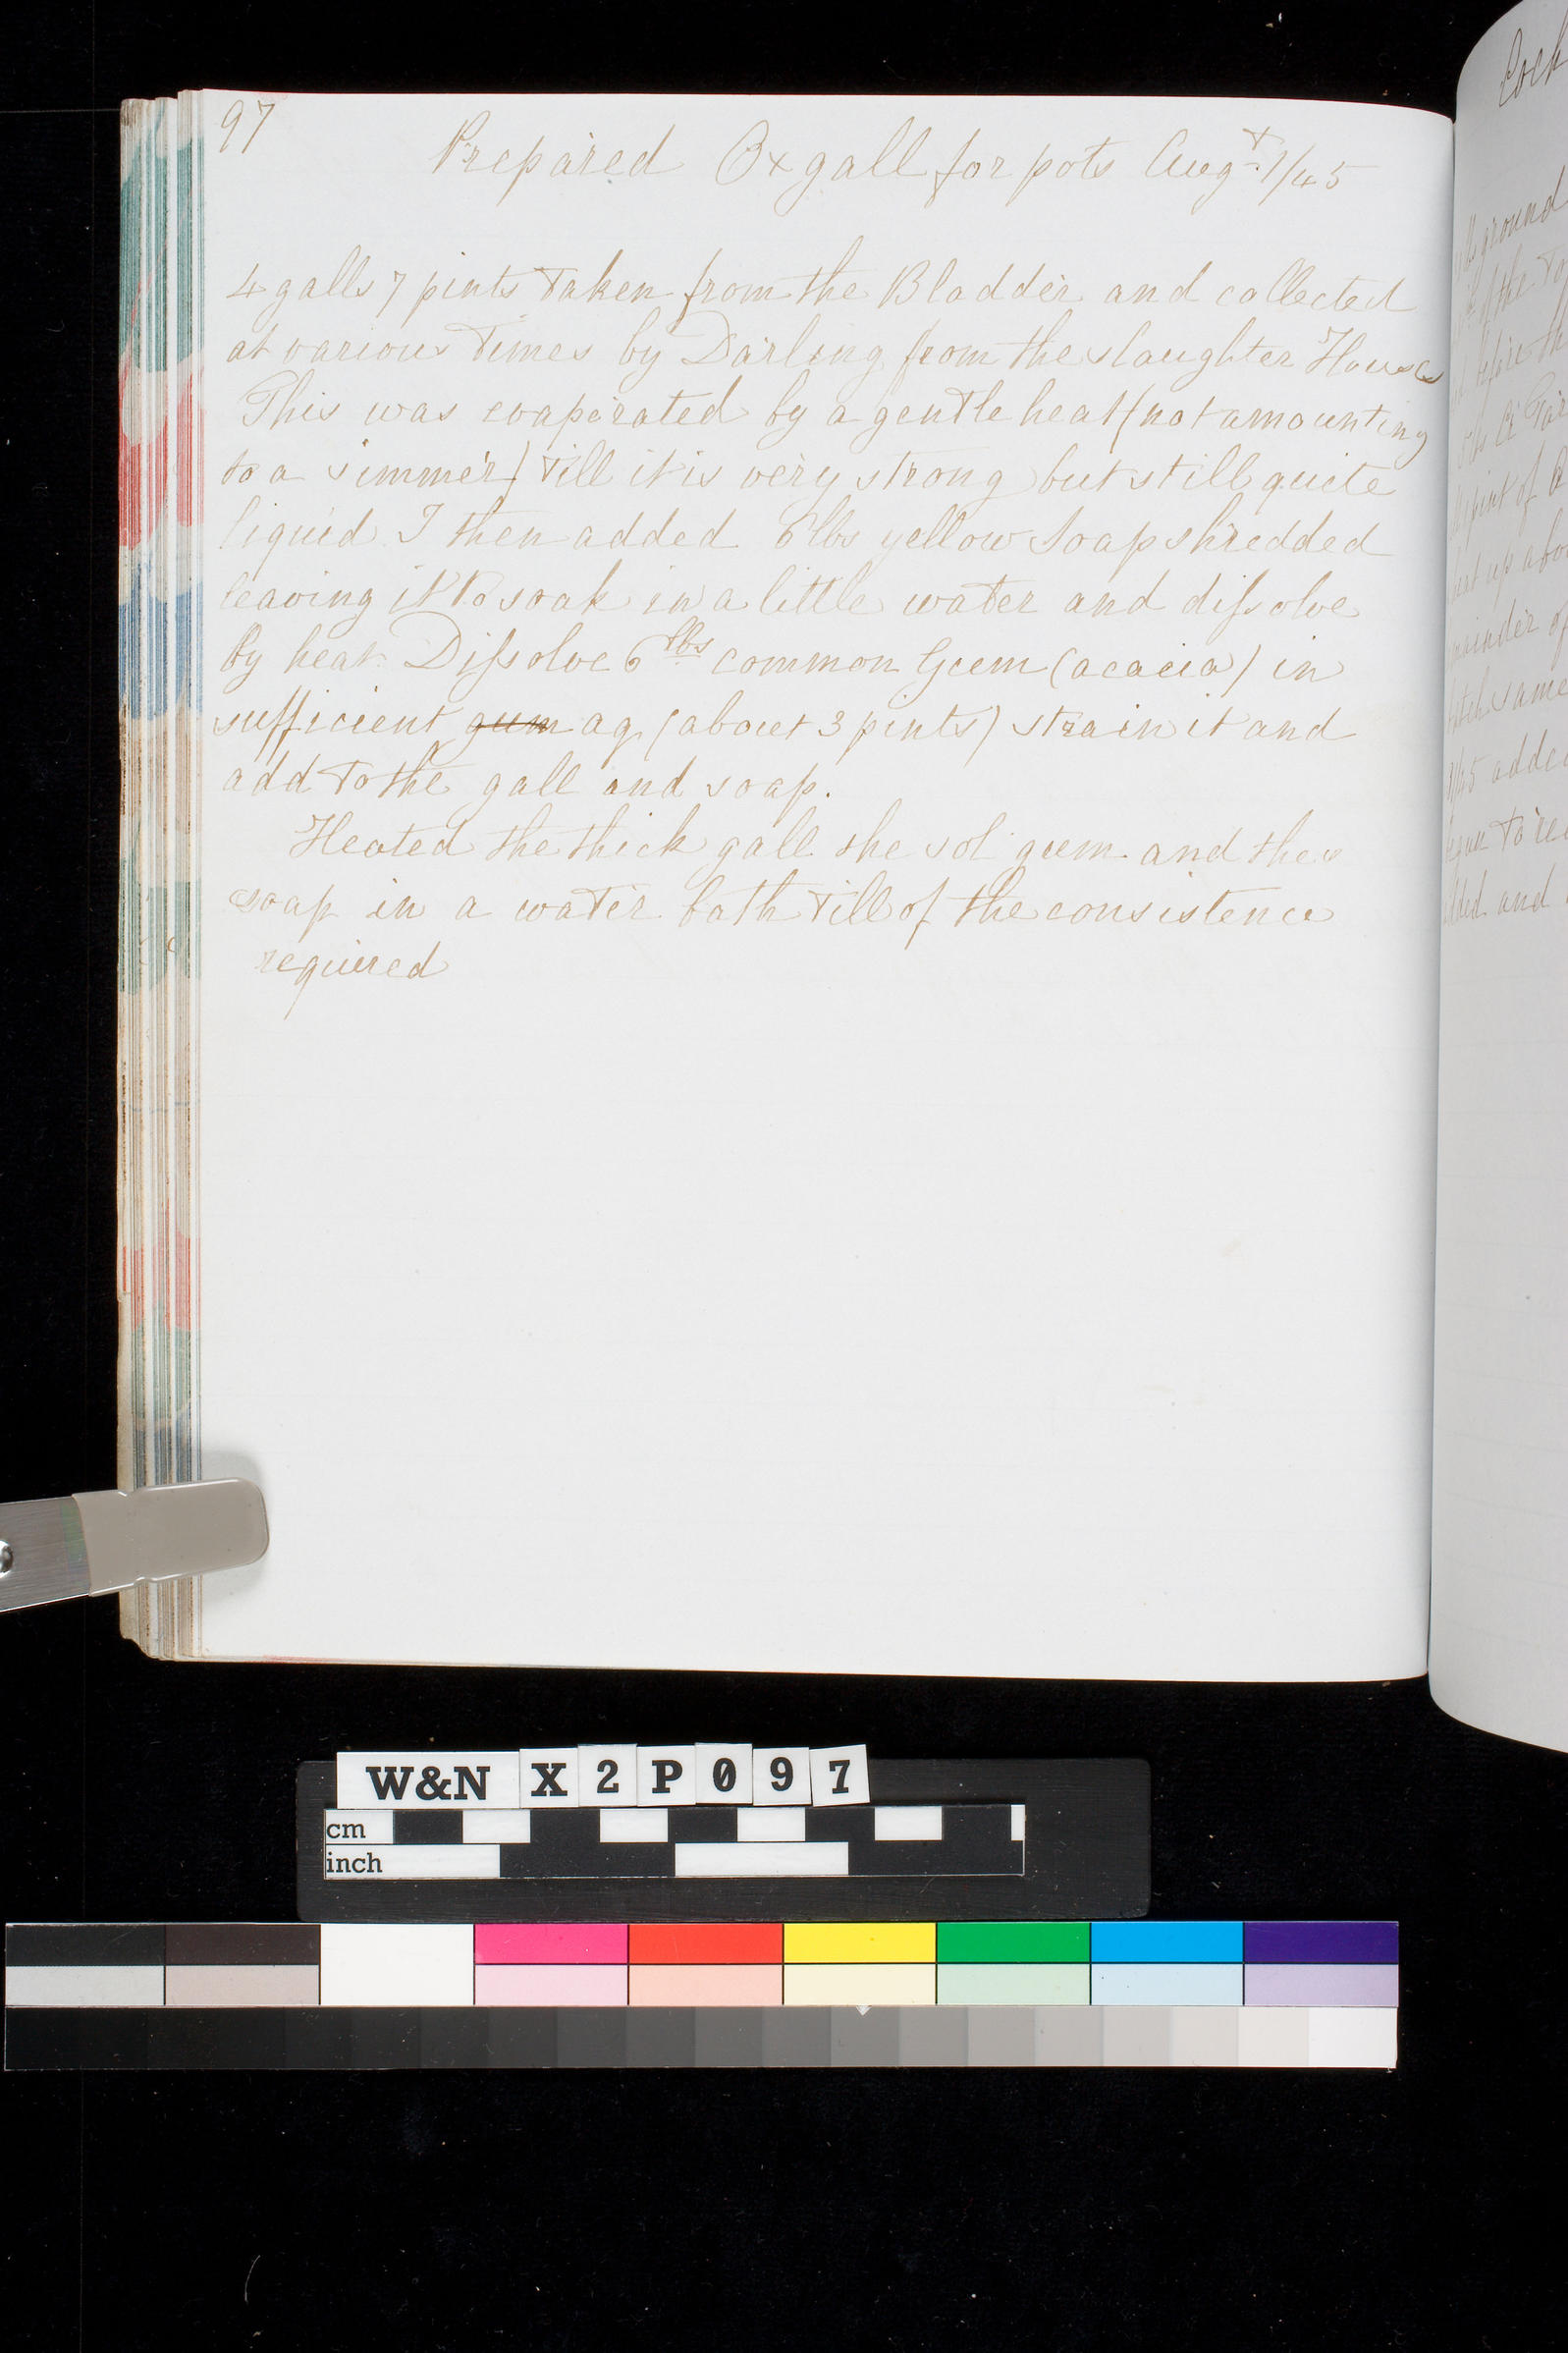 97
Prepared Ox gall for pots Augt. 1/45
4 galls 7 pints taken from the Bladder and collected
at various times by Darling from the slaughter Houses
This was evaporated by a gentle heat (not amounting
to a simmer) till it is very strong but still quite
liquid I then added 6lbs yellow Soap shredded
leaving it to soak in a little water and dissolve
by heat Dissolve 6lbs common Gum (acacia) in
sufficient gum aq. (about 3 pints) strain it and
add to the gall and soap.
Heated the thick gall the sol gum and the
soap in a water bath till of the consistence
required
Coch
ground
of the
before th
pint of
heat up abo
mainder of
same
added
to re
added and
W&N X2P097
cm
inch